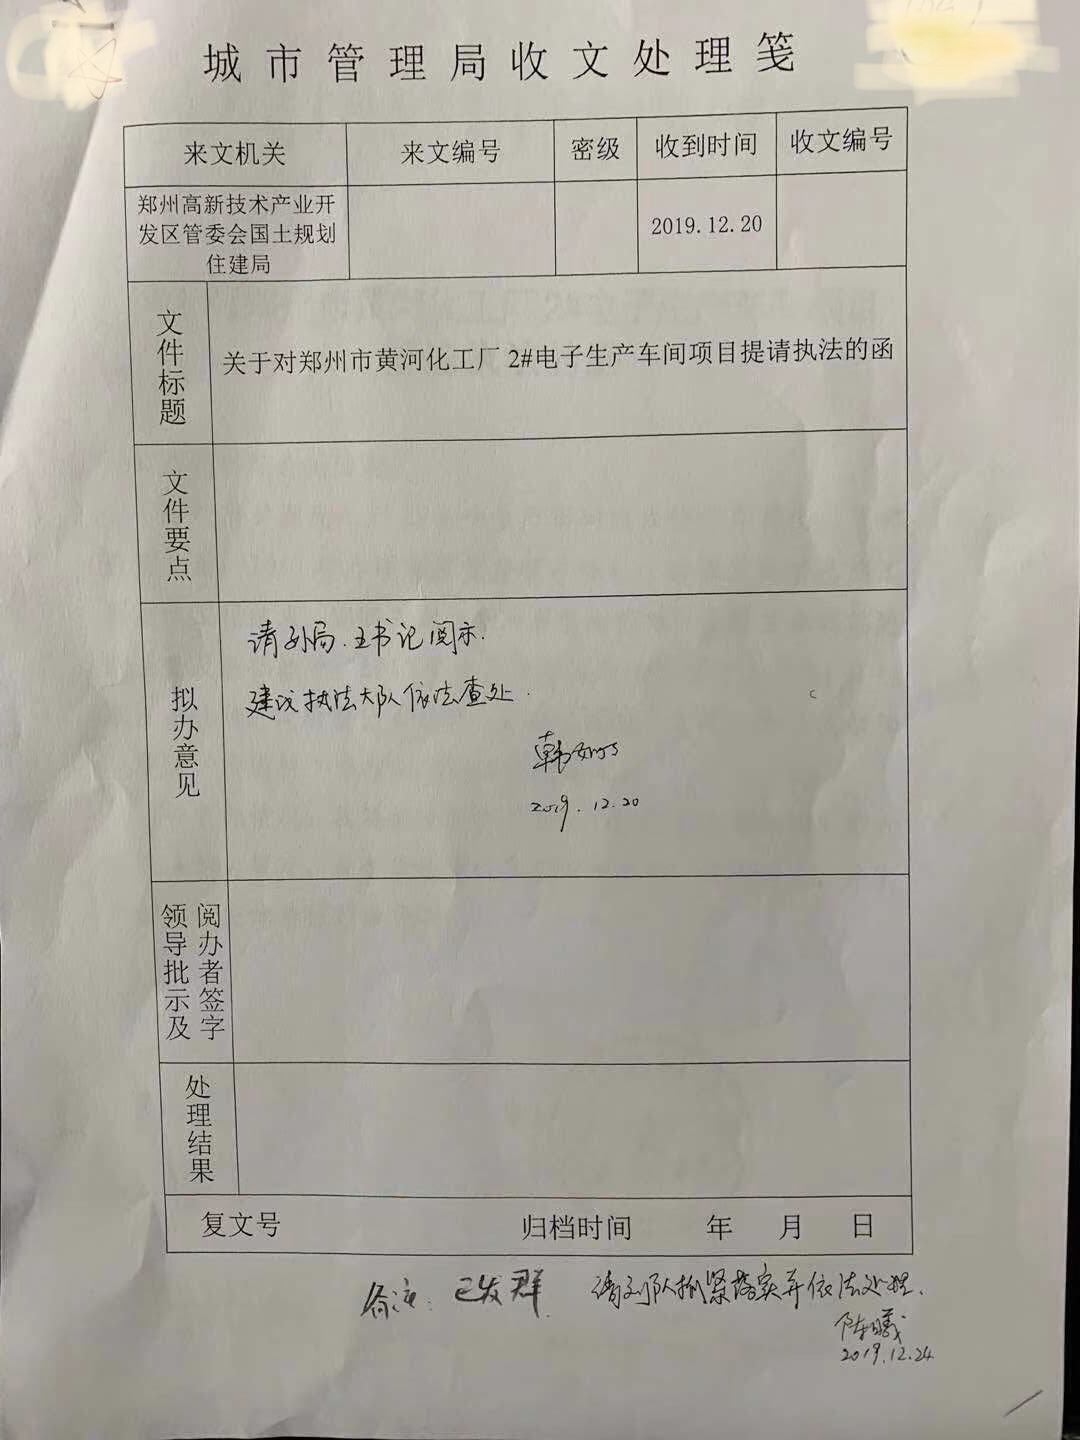 城市管理局收文处理笺
来文机关 来文编号 密级 收到时间 收文编号
郑州高新技术产业开
发区管委会国土规划
住建局
2019.12.20
文件标题
关于对郑州市黄河化工厂 2#电子生产车间项目提请执法的函
文件要点
拟办意见
请孙局、王书记阅示.
建议执法大队依法查处.
2019.12.20
领导批示及
阅办者签字
处理结果
复文号 归档时间 年 月 日
备注：已发群
请刘队抓紧落实并依法处理.
陈曦
2019.12.24